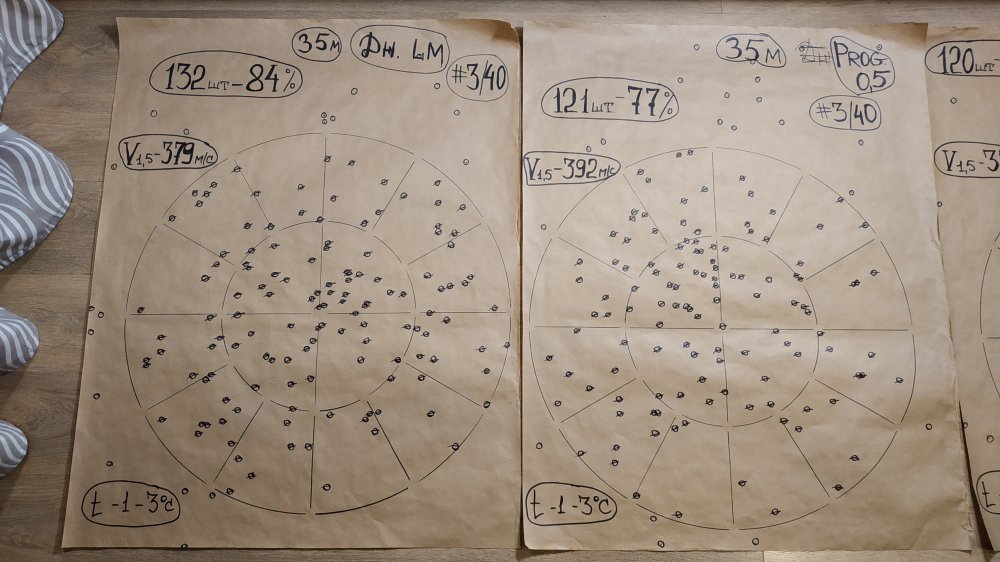 35м
Дн. LM
132шт-84%
#3/40
V1,5-379м/с
t -1-3°C
35м
PROG.
0,5
121шт-77%
#3/40
V1,5-392м/с
t -1-3°C
120шт-
V1,5-3